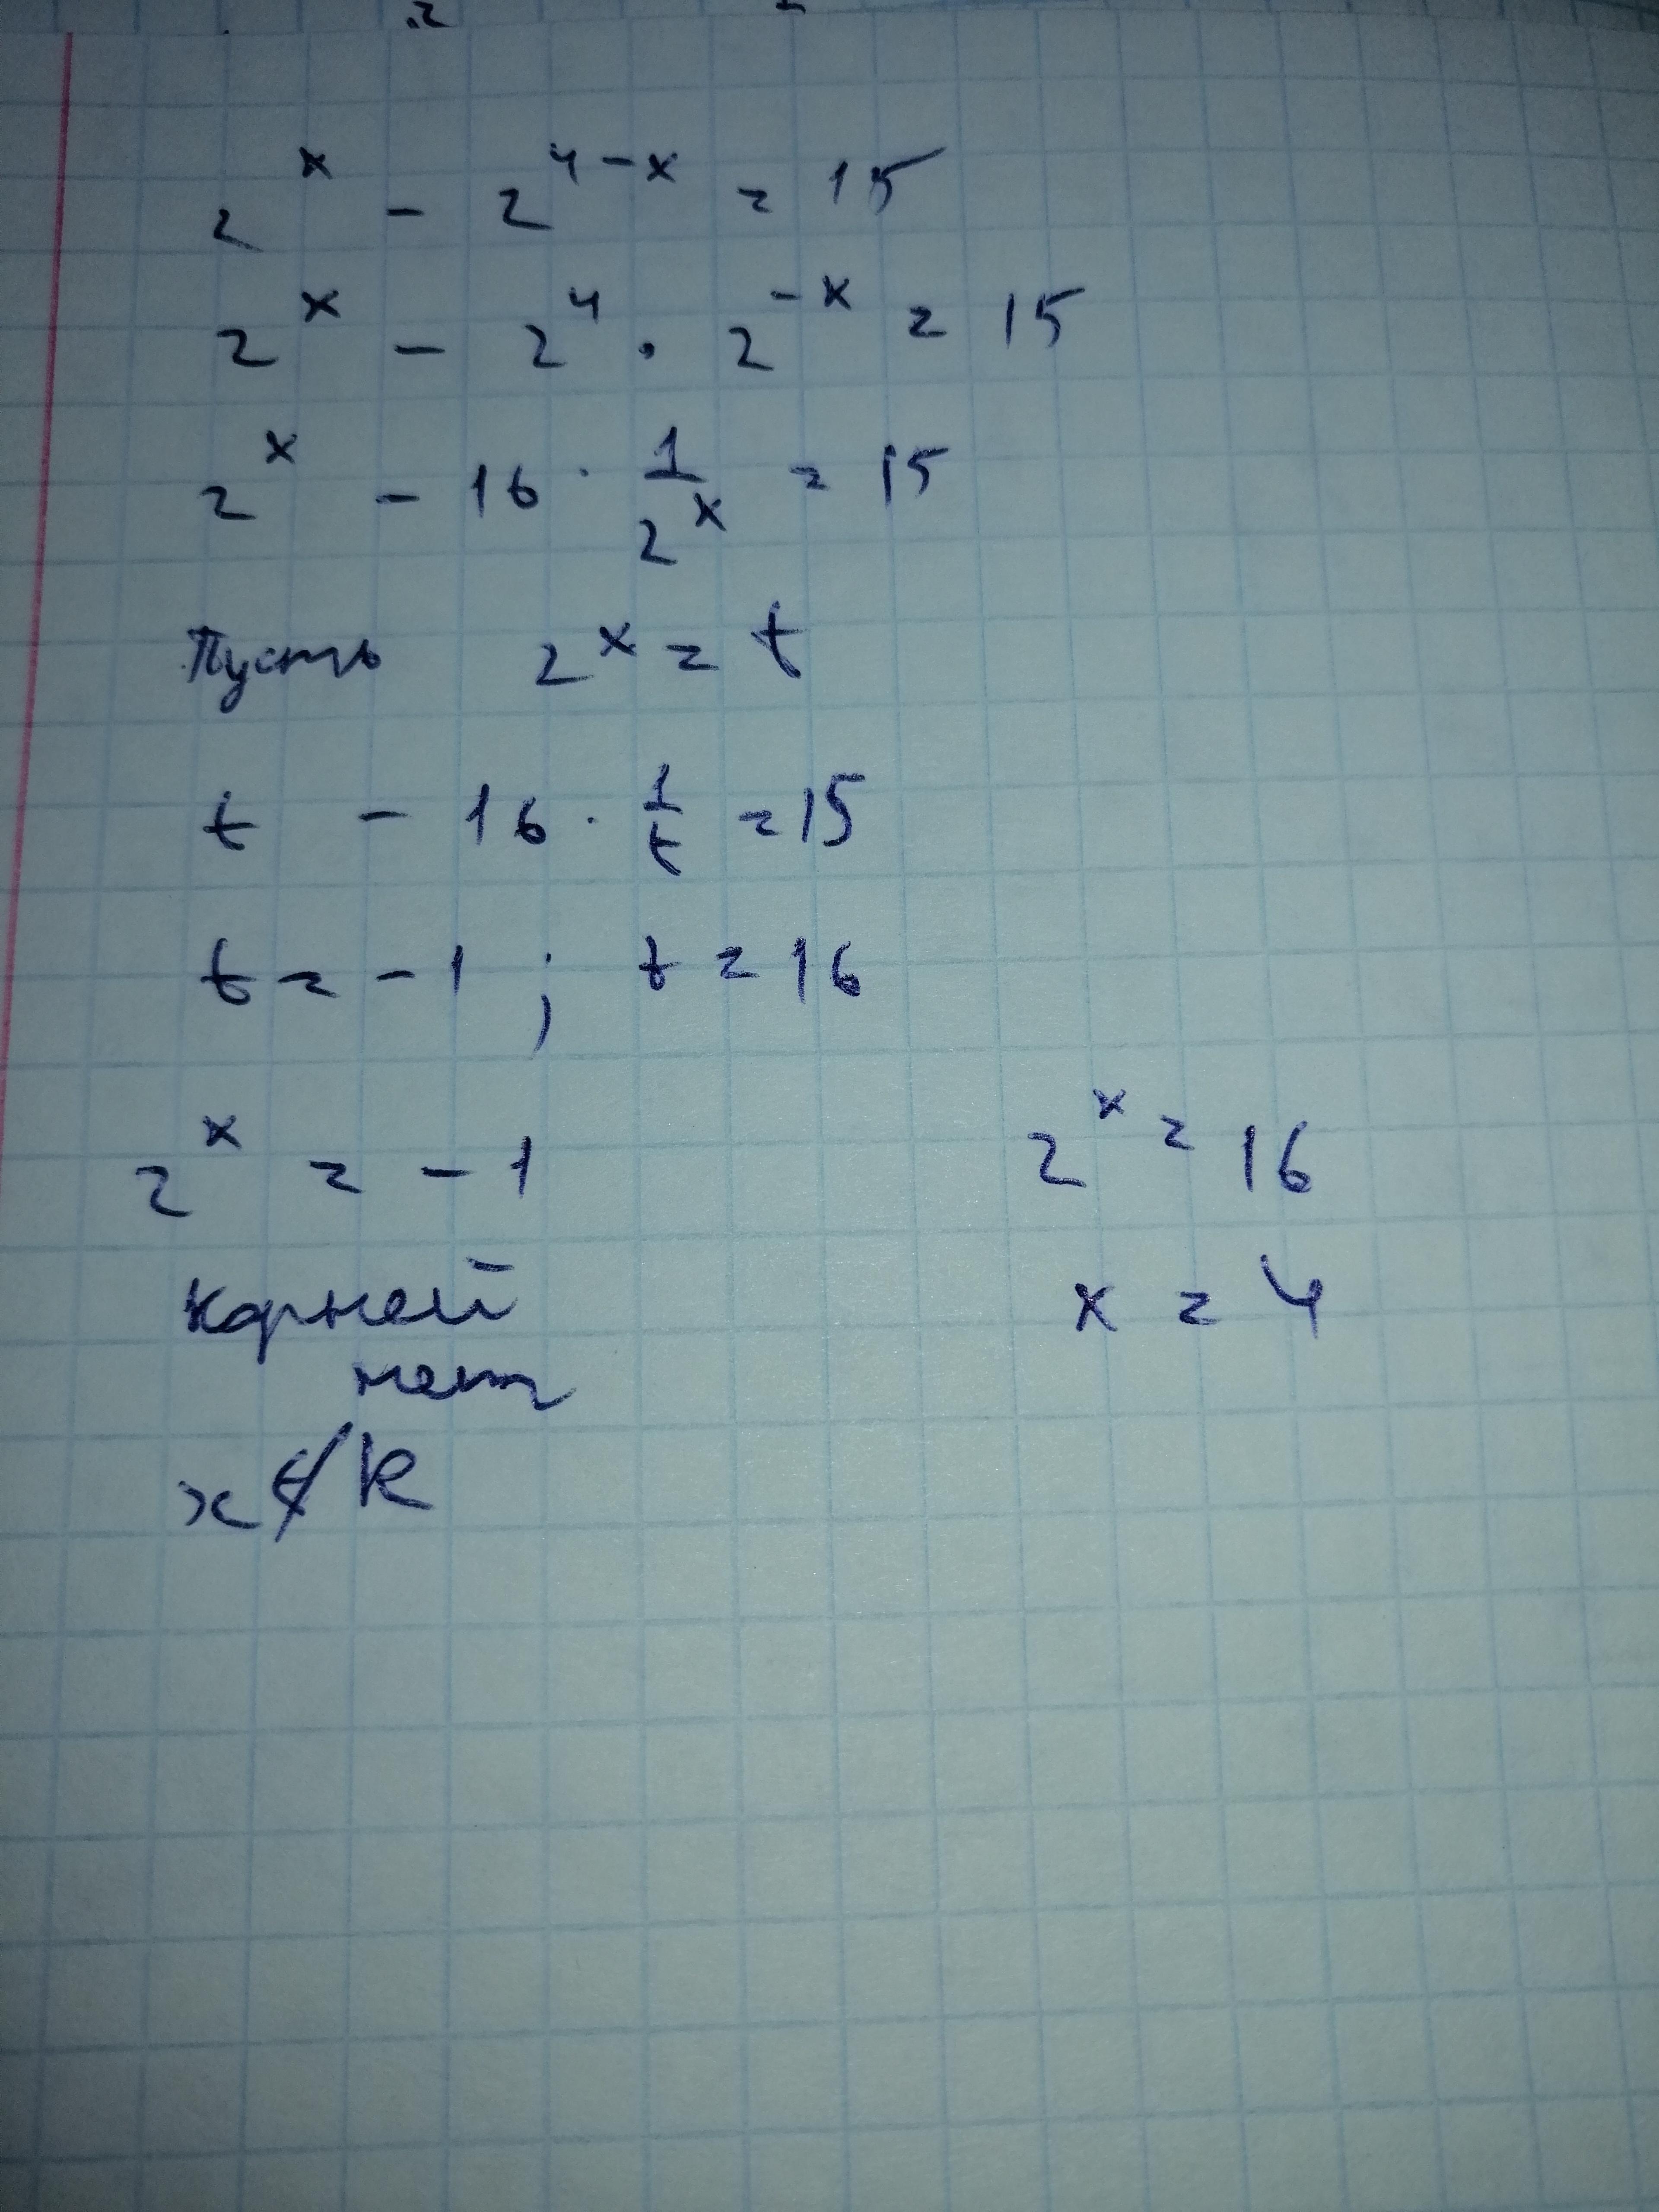 2^x - 2^{4-x} = 15
2^x - 2^4 · 2^{-x} = 15
2^x - 16 · 1/2^x = 15
Пусть 2^x = t
t - 16 · 1/t = 15
t = -1 ; t = 16
2^x = -1 2^x = 16
Корней x = 4
нет
x ∉ R